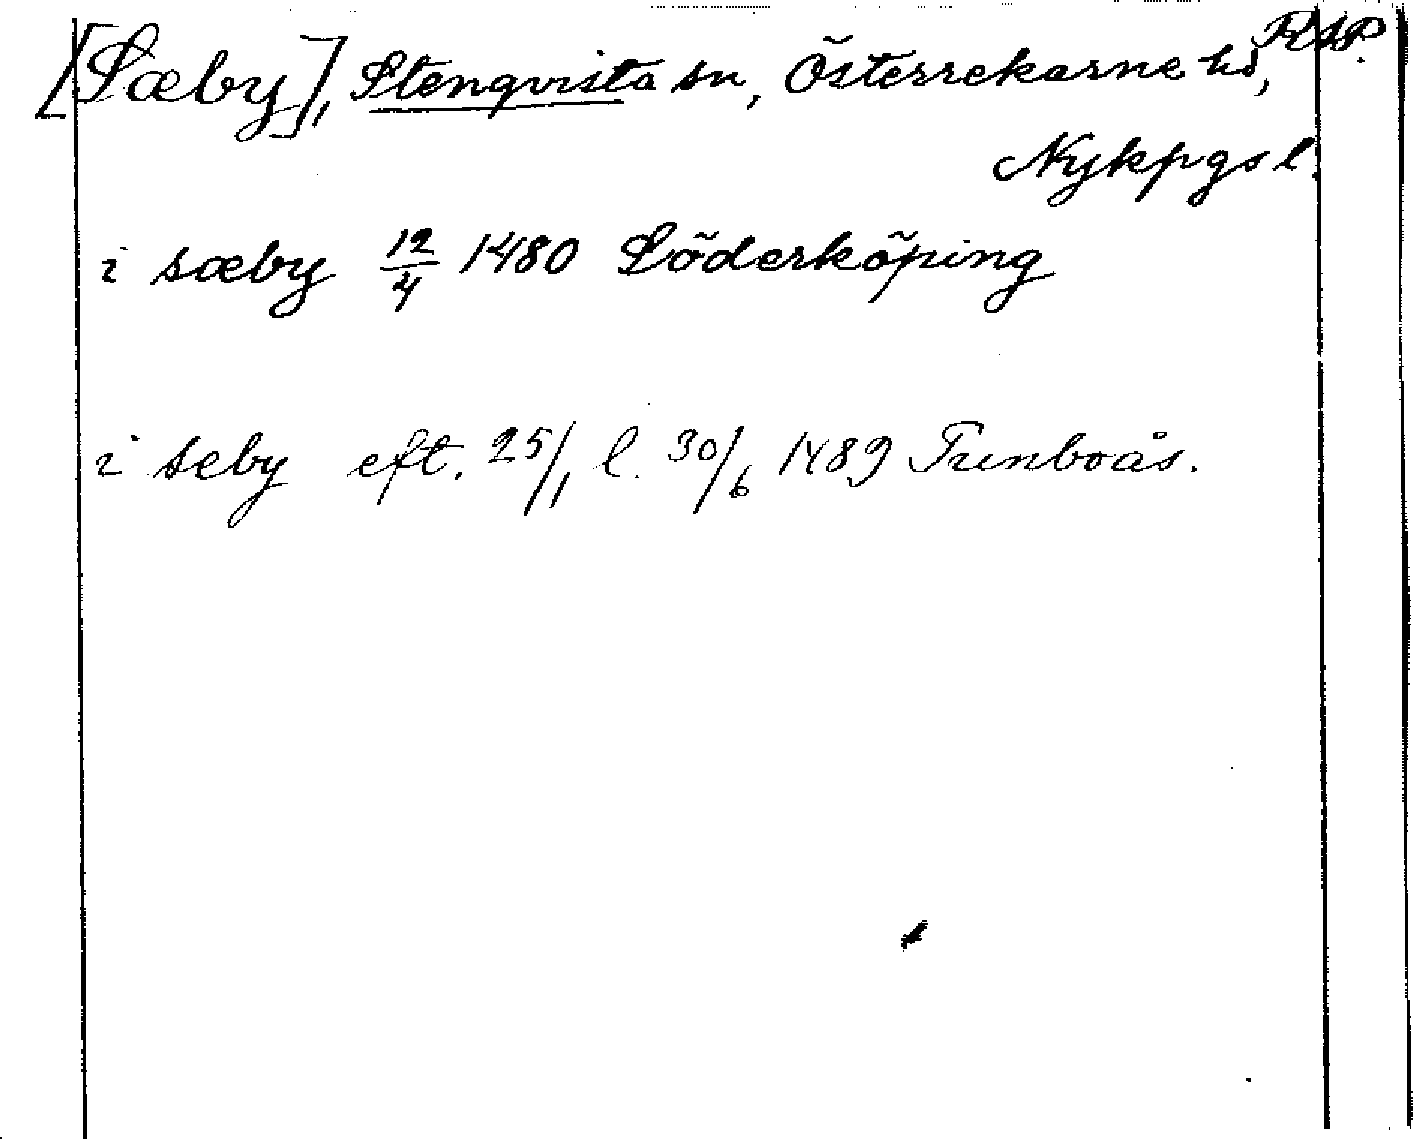 RAP.
[Sæby], Stenqvista sn, Österrekarne hd,
Nykpgs l.
i sæby 12/4 1480 Söderköping
i seby eft. 25/1 l. 30/6 1489 Tunboås.